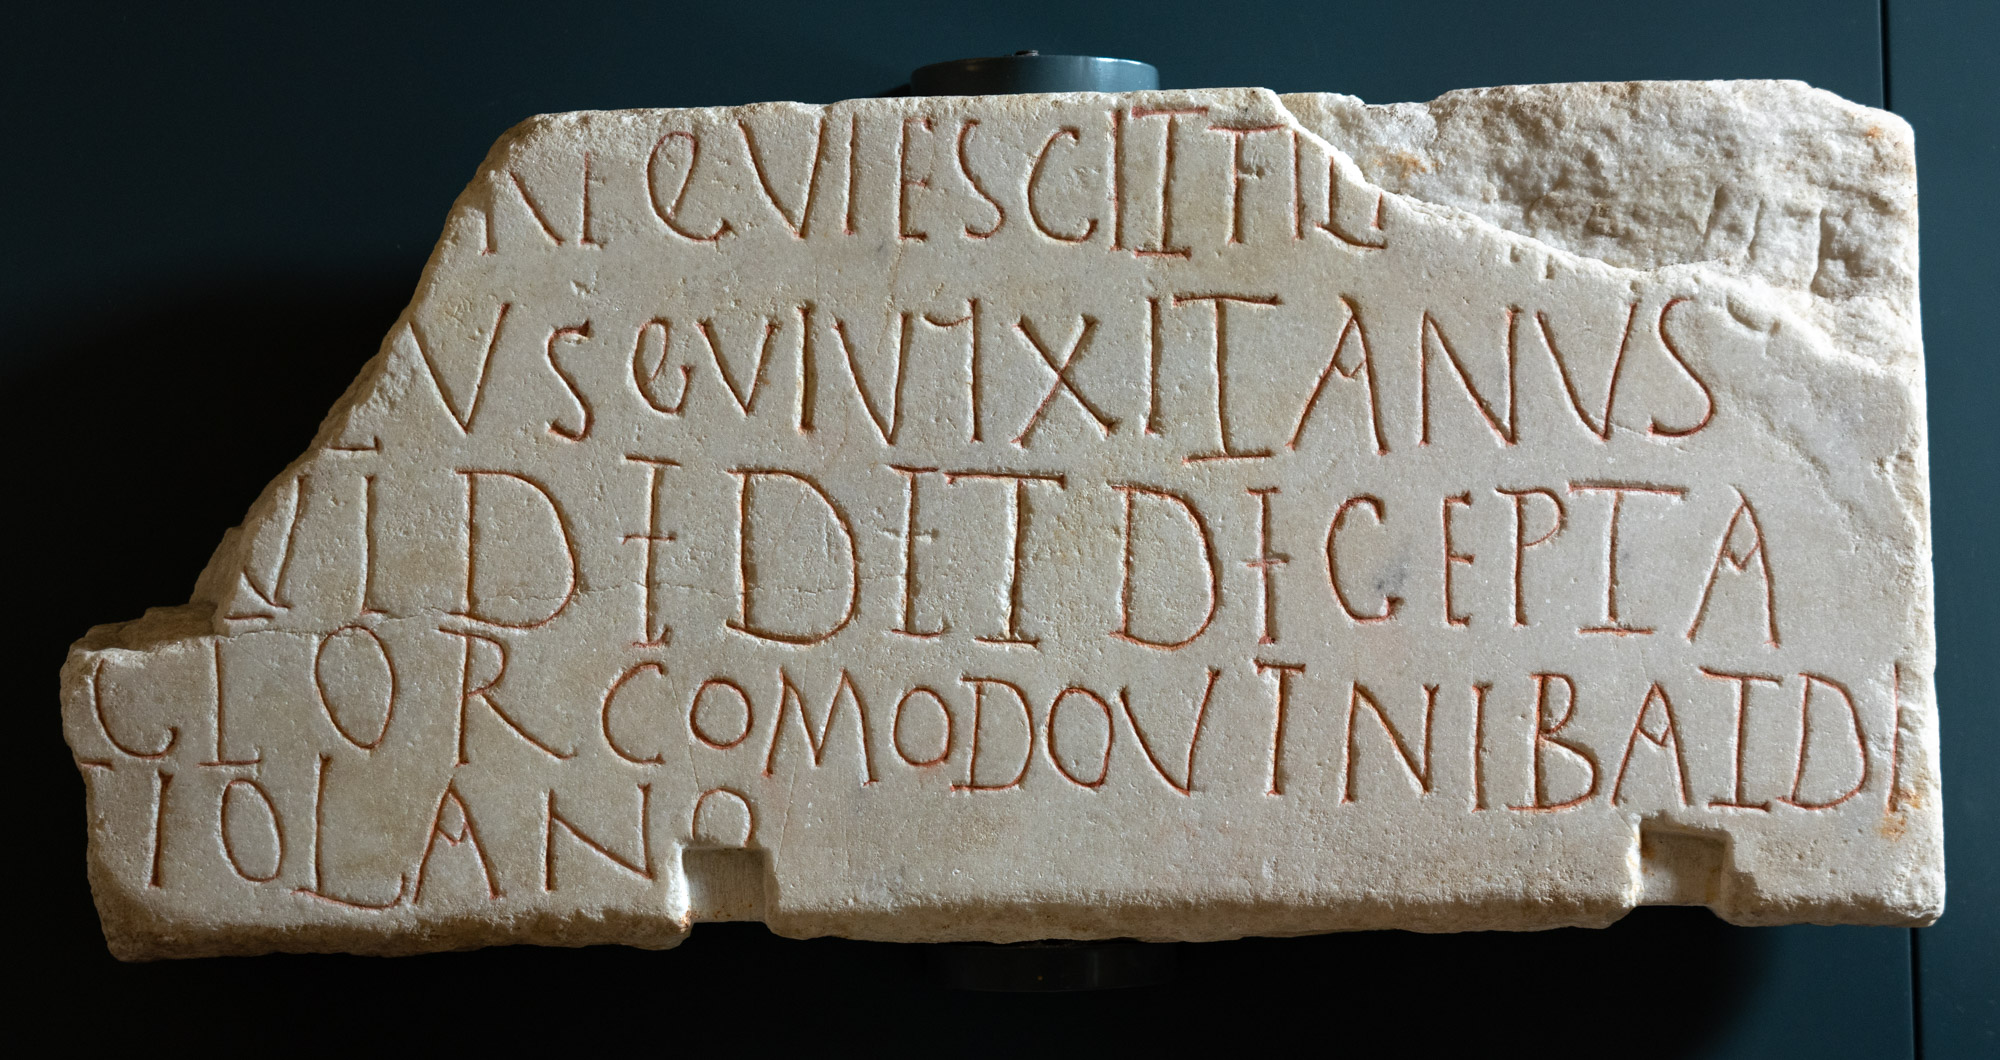 REQVIESCITFIL
VSQVIVIXITANVS
VIDIDETDICEPTA
CLORCOMODOVTNIBAIDI
IOLANO